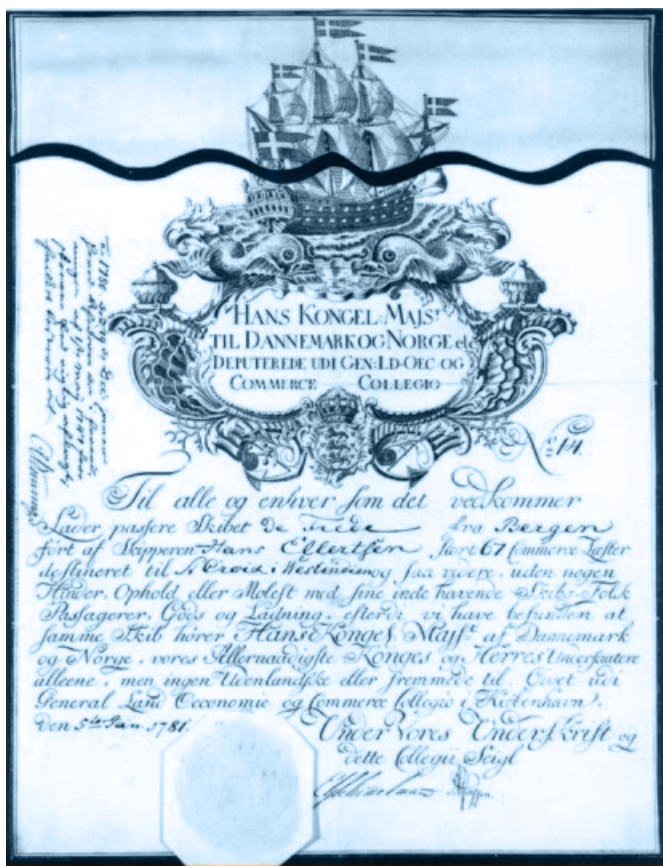 HANS KONGEL: MAJSᵗ
TIL DANNEMARK OG NORGE etc
DEPUTEREDE UDI GEN: LD-OEC-OG
COMMERCE COLLEGIO
No 14.
Til alle og enhver som det vedkommer
Lader passere Skibet de Friede fra Bergen
ført af Skipperen Hans Ellertsen stort 67 Commerce Læster
destineret til St Croix i Westindien og saa videre, uden nogen
Hinder, Ophold eller Molest med sine inde havende Skibs-Folk
Passagerer, Gods og Ladning, efterdi vi have befunden at
samme Skib hører Hans Konge: Majsᵗ af Dannemark
og Norge, vores Allernaadigste Konges og Herres Undersaatere
alleene, men ingen Udenlandske eller fremmede til. Givet udi
General Land Oeconomie og Commerce Collegio i Kiøbenhavn.
den 5te Jan. 1781.
Under Vores Underskrift og
dette Collegii Seigl